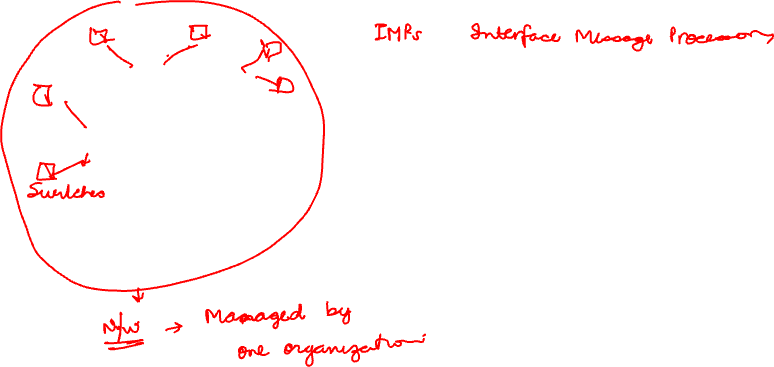 IMPs Interface Message Processors
Switches
N/w → Managed by
one organization